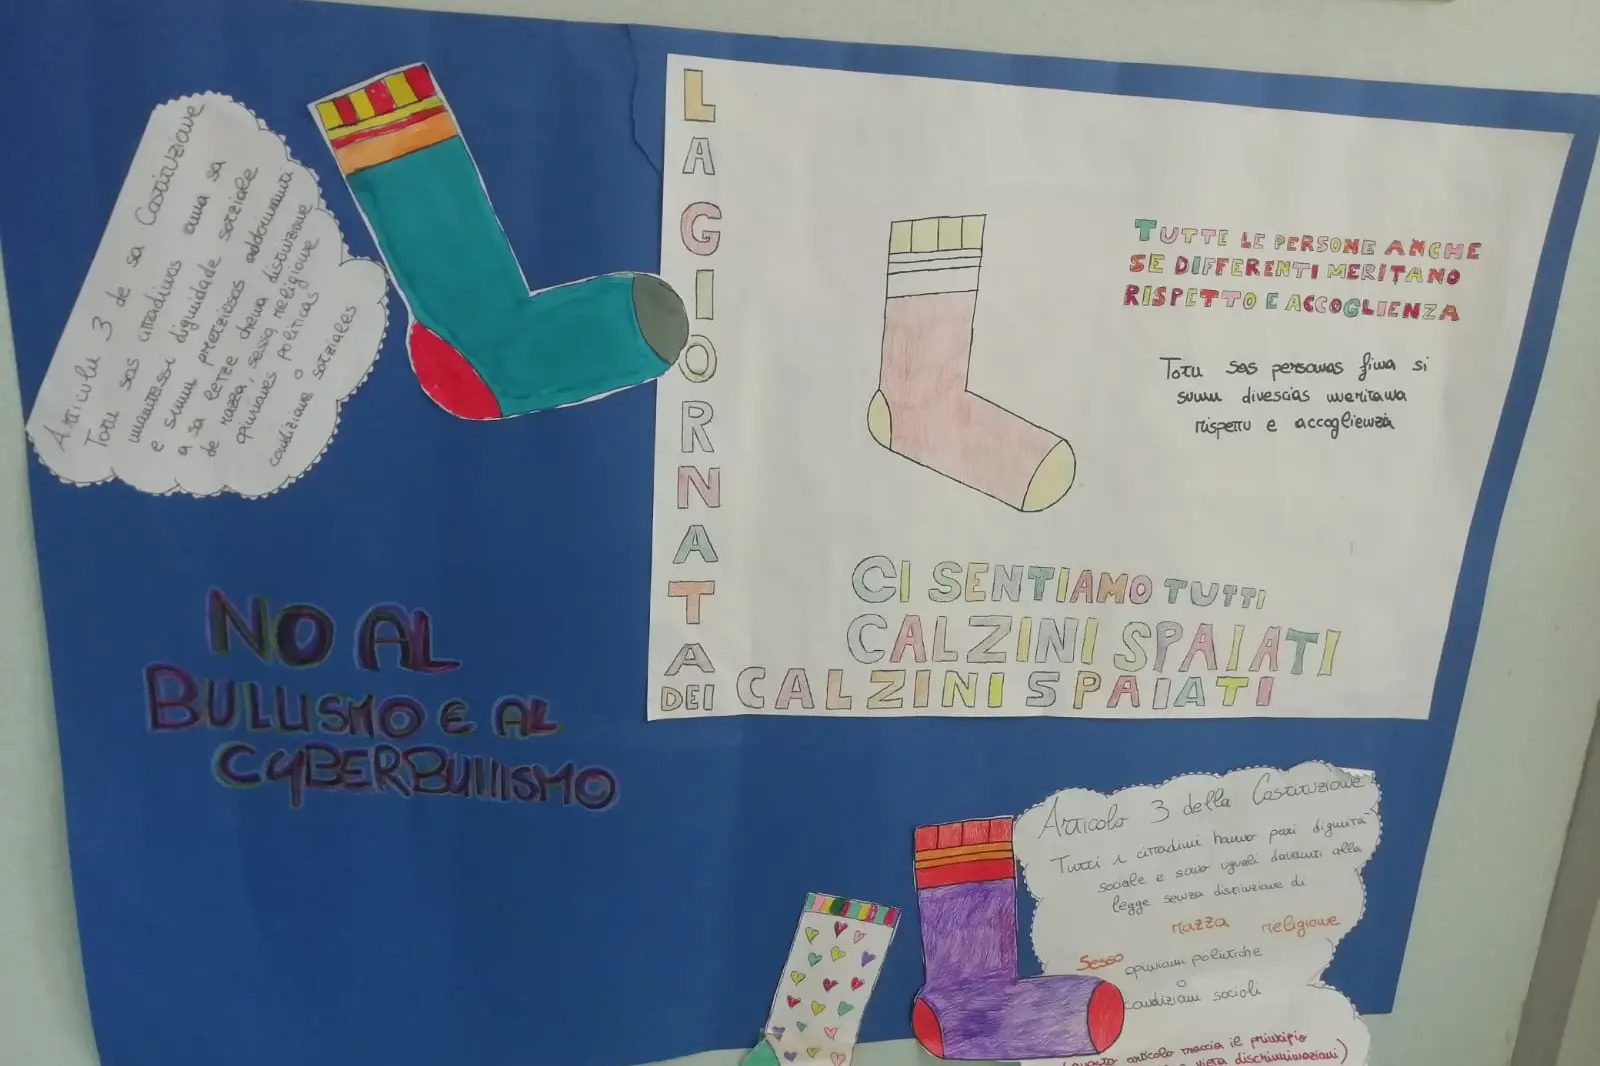 Articulu 3 de sa Costituzione
Totu sos cittadinos ana sa
mantessi dignidade sotziale
e sunu pretziosos addainanti
a sa letze chena distinzione
de razza, sessu, religione
opiniones politicas
o
condizione sotziales
LA GIORNATA
DEI CALZINI SPAIATI
TUTTE LE PERSONE ANCHE
SE DIFFERENTI MERITANO
RISPETTO E ACCOGLIENZA
Totu sas personas fina si
sunu divescias meritana
rispettu e accoglienzia
CI SENTIAMO TUTTI
CALZINI SPAIATI
NO AL
BULLISMO E AL
CYBERBULLISMO
Articolo 3 della Costituzione
Tutti i cittadini hanno pari dignità
sociale e sono uguali davanti alla
legge senza distinzione di
razza religione
Sesso
opinioni politiche
o
condizioni sociali
questo articolo traccia il principio
vieta discriminazioni)